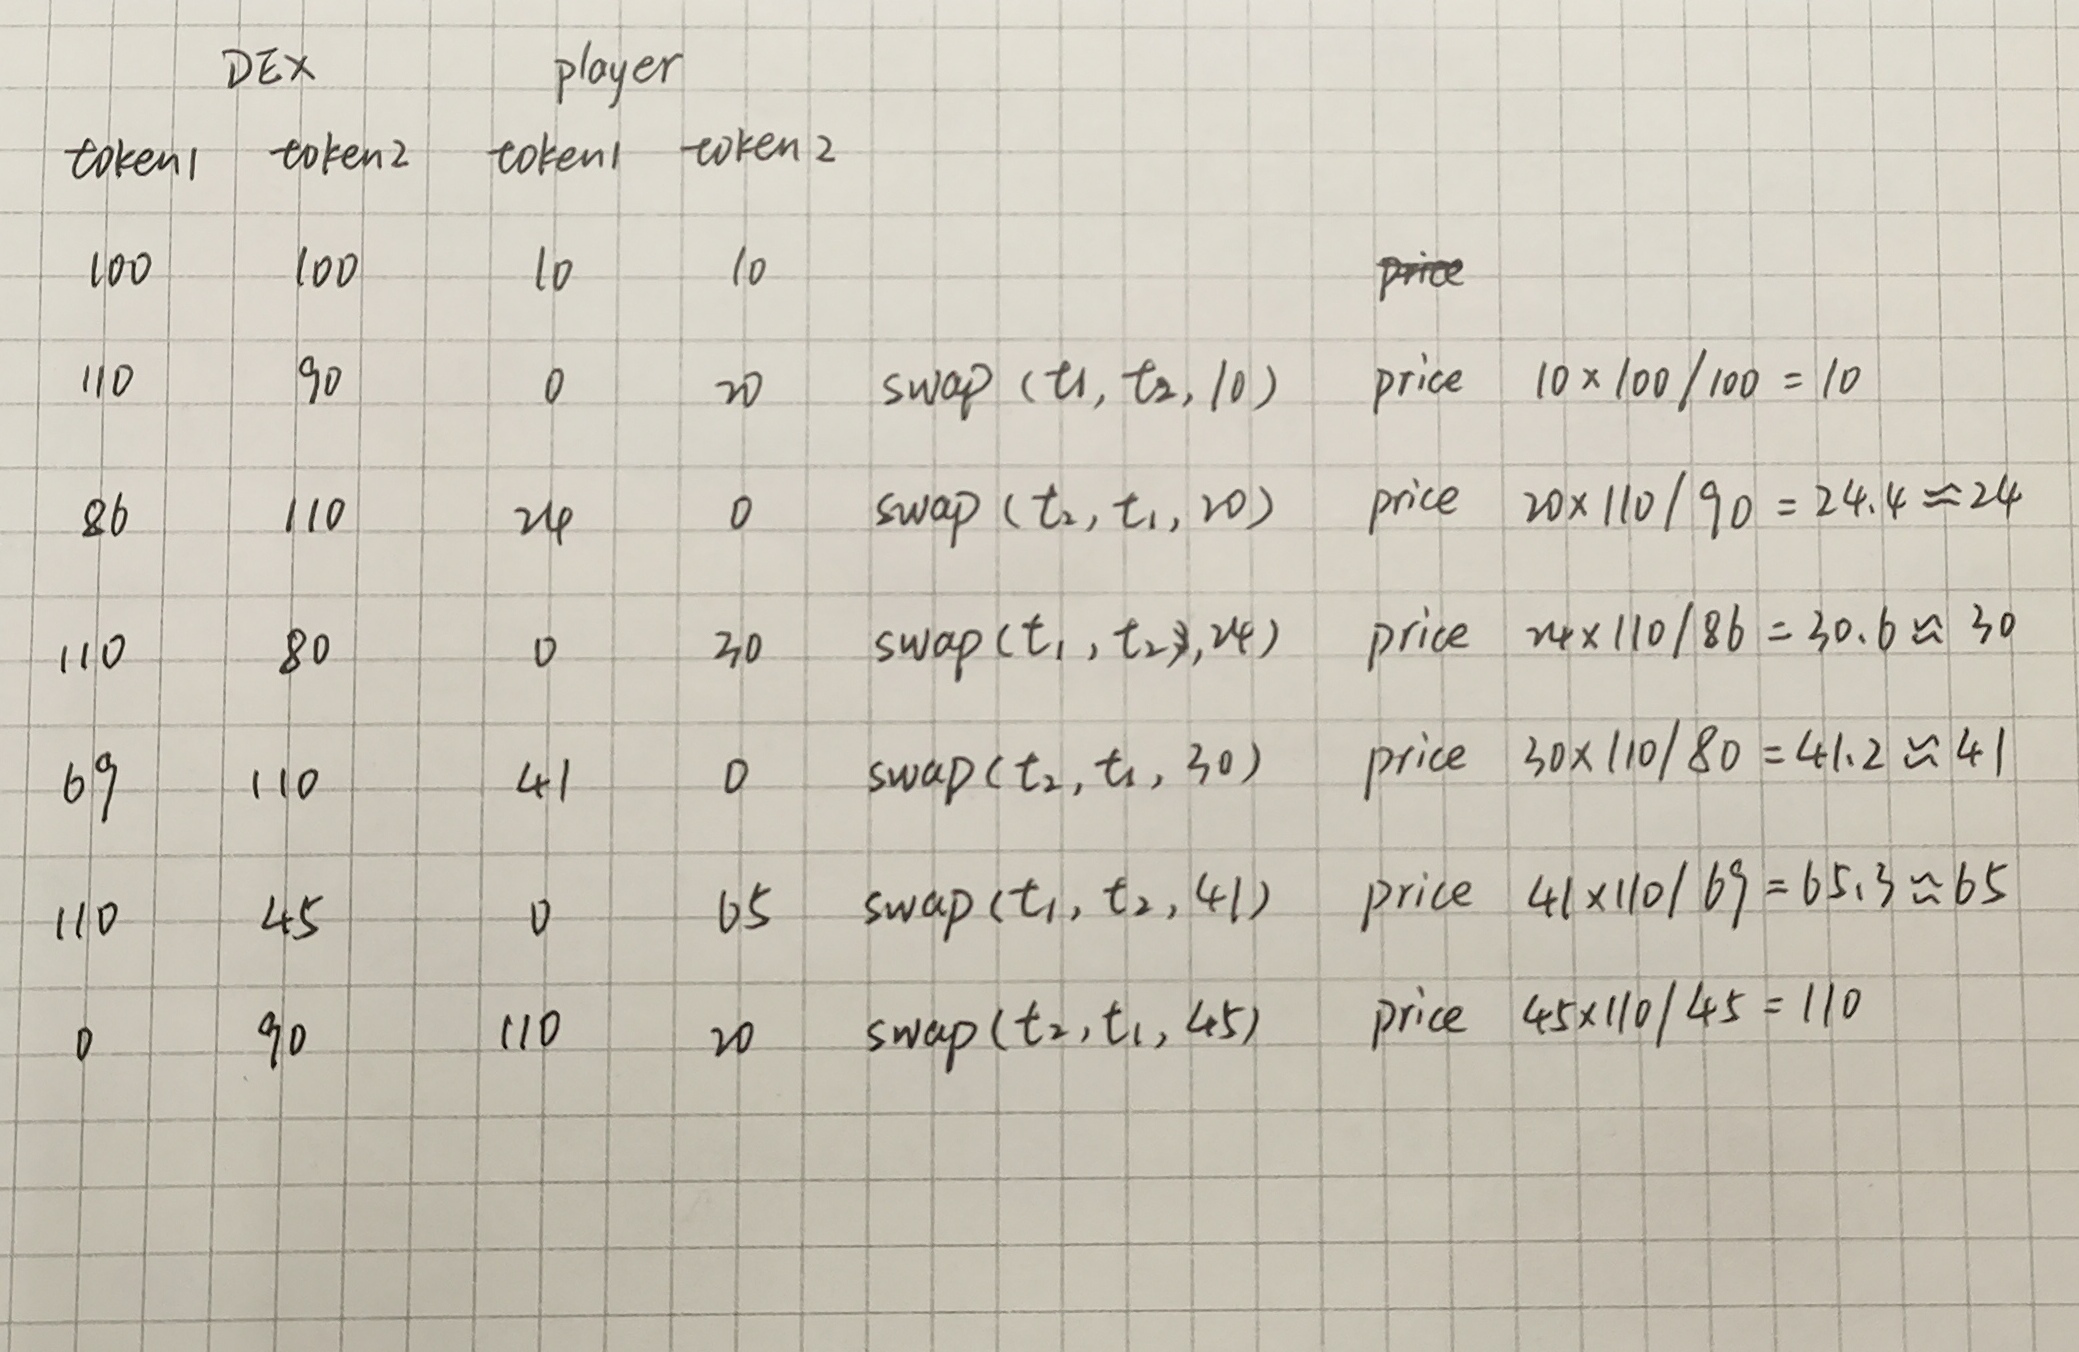 DEX player
token1 token2 token1 token2
100 100 10 10 price
110 90 0 20 swap (t1, t2, 10) price 10×100/100 = 10
86 110 24 0 swap (t2, t1, 20) price 20×110/90 = 24.4 ≈ 24
110 80 0 30 swap(t1, t2, 24) price 24×110/86 = 30.6 ≈ 30
69 110 41 0 swap(t2, t1, 30) price 30×110/80 = 41.2 ≈ 41
110 45 0 65 swap(t1, t2, 41) price 41×110/69 = 65.3 ≈ 65
0 90 110 20 swap(t2, t1, 45) price 45×110/45 = 110